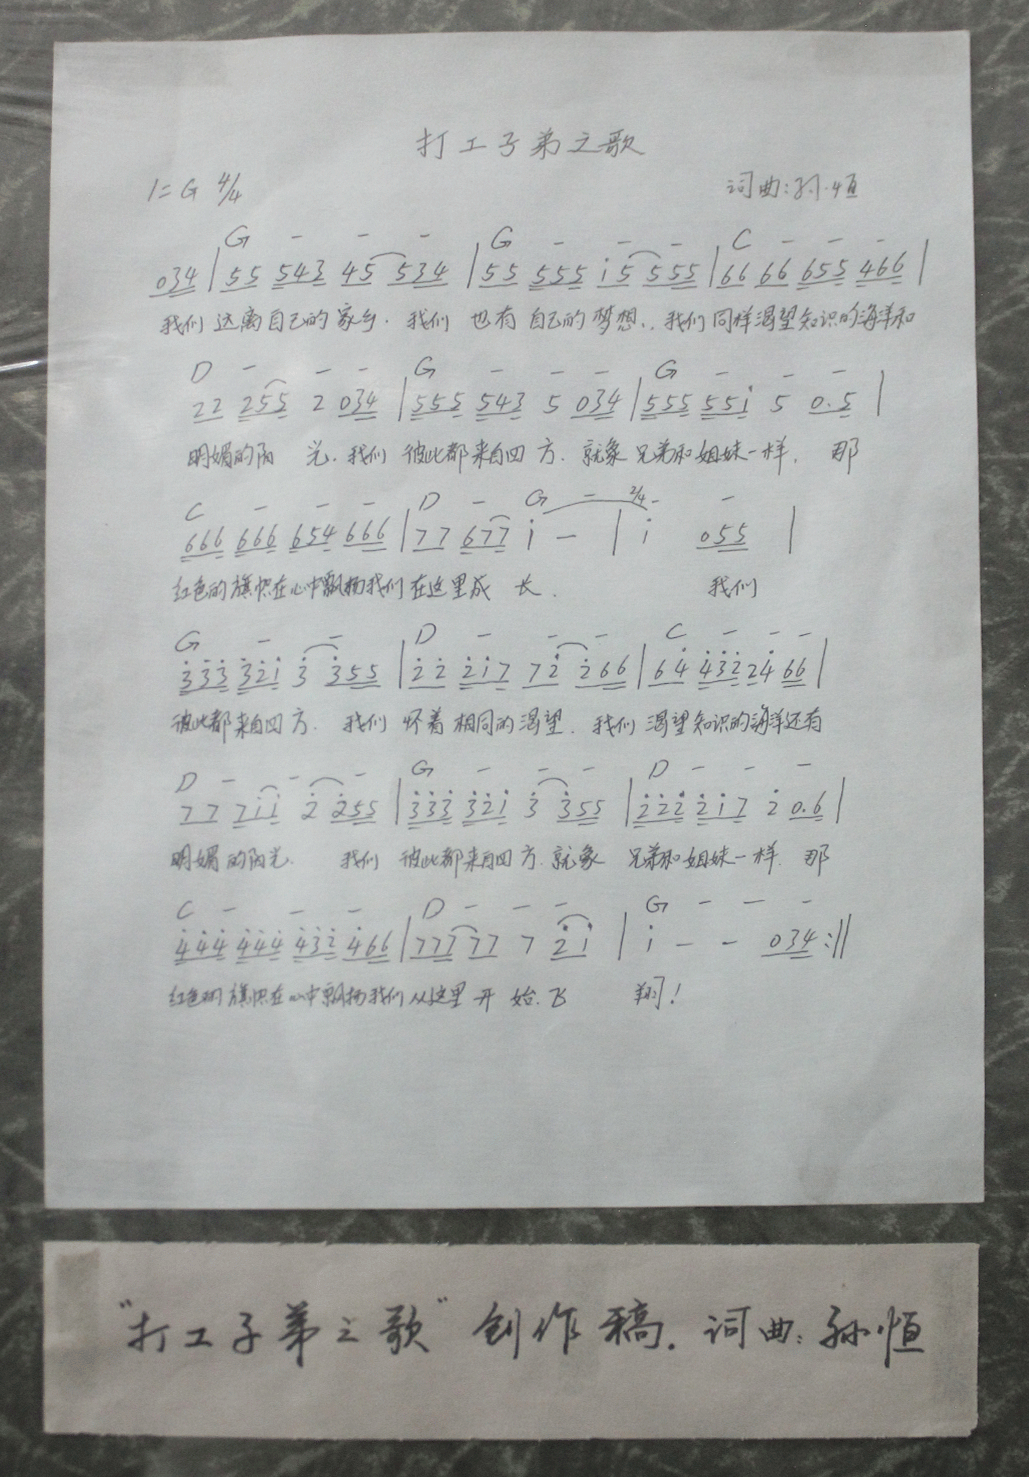 打工子弟之歌
1=G 4/4 词曲:孙恒
G － － － | G － － － | C － － －
034 | 55 543 45 534 | 55 555 i5 555 | 66 66 655 466 |
我们 远离自己的 家乡. 我们 也有 自己的 梦想., 我们 同样渴望知识的海洋和
D － － － G － － － G － － －
22 255 2 034 | 555 543 5 034 | 555 55i 5 0.5 |
明媚的阳 光. 我们 彼此都来自四 方. 就象 兄弟和姐妹一样. 那
C － － － D － G － 2/4 － －
666 666 654 666 | 77 677 i － | i 055 |
红色的旗帜在心中飘扬我们在这里成 长. 我们
G － － D － － － C － － －
3̇3̇3̇ 3̇2̇i 3̇ 3̇55 | 2̇2̇ 2̇i7 72̇ 2̇66 | 64̇ 4̇3̇2̇ 24̇ 66 |
彼此都来自四方. 我们 怀着相同的渴望. 我们 渴望知识的海洋还有
D － － － G － － － D － － －
77 7ii 2̇ 2̇55 | 3̇3̇3̇ 3̇2̇i 3̇ 3̇55 | 2̇2̇2̇ 2̇i7 2̇ 0.6 |
明媚的阳光. 我们 彼此都来自四方. 就象 兄弟和姐妹一样. 那
C － － － D － － － G － － －
4̇4̇4̇ 4̇4̇4̇ 4̇3̇2̇ 4̇66 | 777 77 7 2̇i | i － － 034 :||
红色的旗帜在心中飘扬我们从这里开 始. 飞 翔!
"打工子弟之歌" 创作稿. 词曲: 孙恒